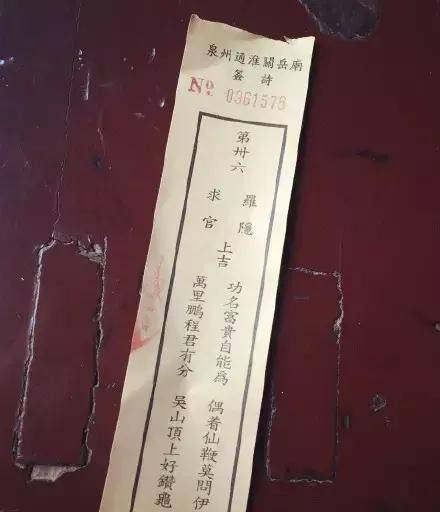 泉州通淮關岳廟
籤詩
No. 0361576
第卅六
羅隱
求官
上吉
功名富貴自能為
偶着仙鞭莫問伊
萬里鵬程君有分
吳山頂上好鑽龜